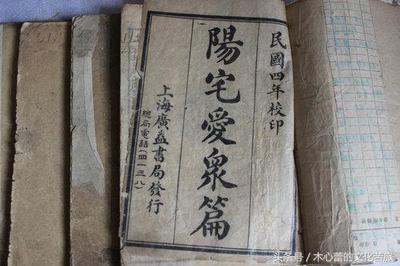 民國四年校印
陽宅愛眾篇
上海廣益書局發行
總局電話(四一三八)
头条号/木心蕾的文化苦旅